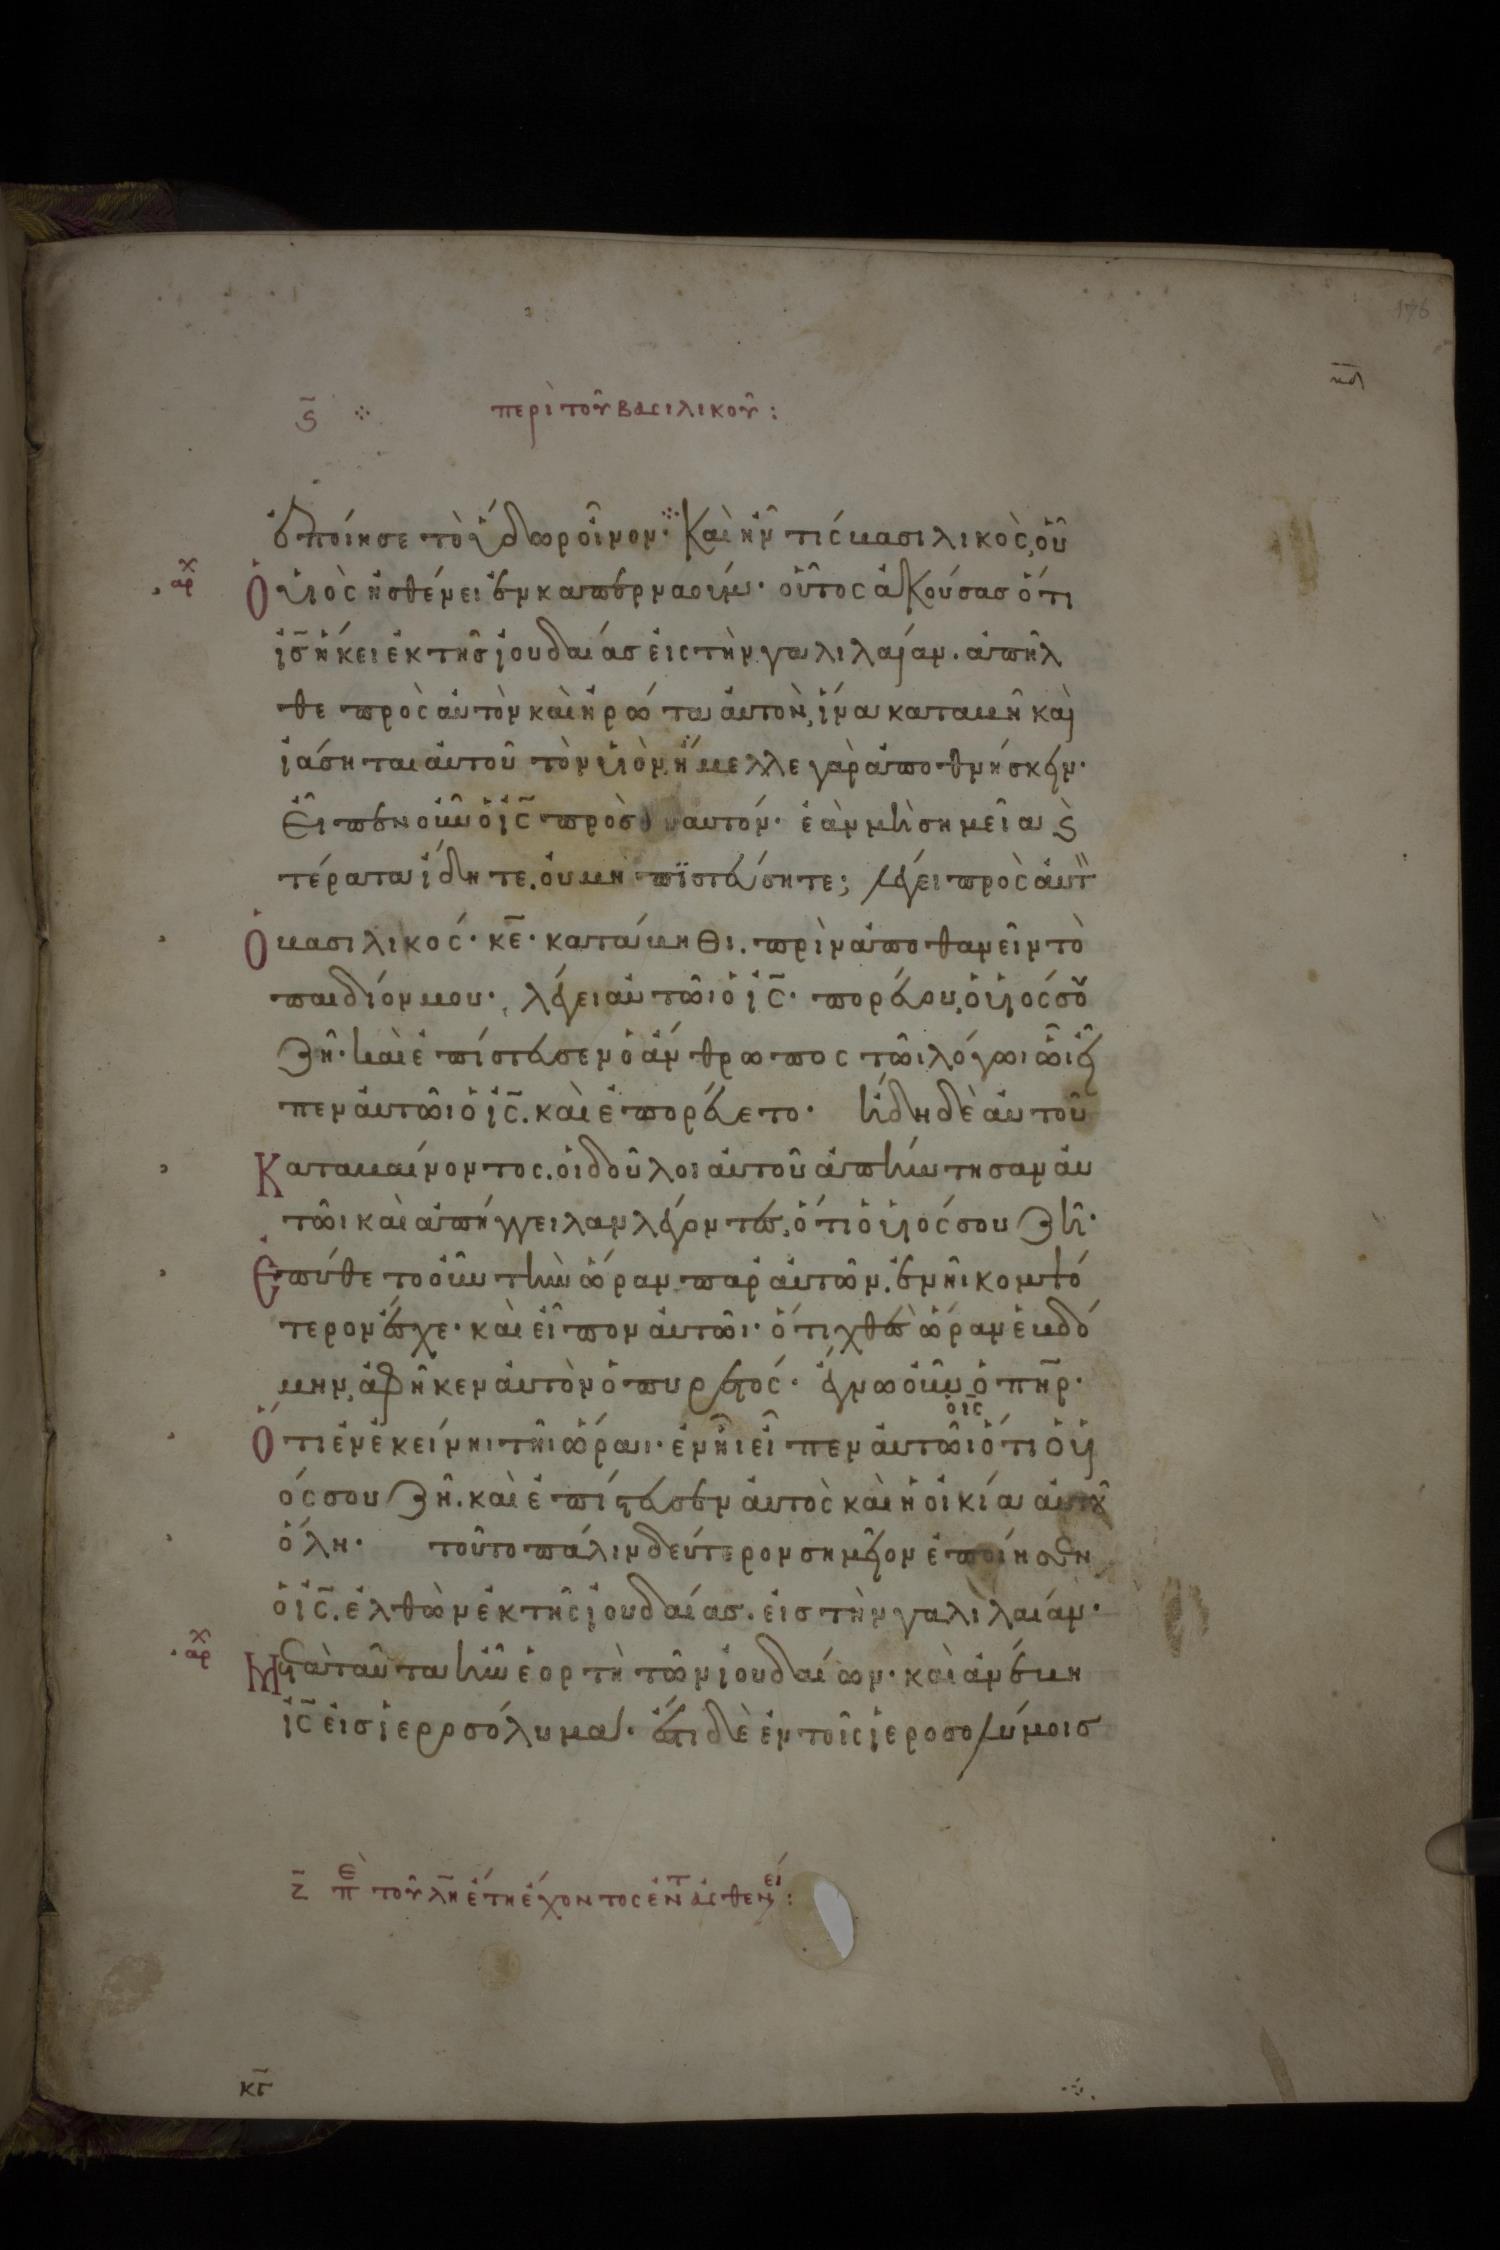 176
κδ
ς̄ περὶ τοῦ βασιλικοῦ:
ἐποίησε τὸ ὕδωρ οἶνον· Καὶ ἦν τίς βασιλικὸς, οὗ
αρχ
Ὁ υἱὸς ἠσθένει ἐν καπερναούμ· οὗτος ἀκούσας ὅτι
ἰς̄ ἥκει ἐκ τῆς ἰουδαίας εἰς τὴν γαλιλαίαν. ἀπῆλ
θε πρὸς αὐτὸν καὶ ἠρώτα αὐτὸν, ἵνα καταβῆ καὶ
ἰάσηται αὐτοῦ τὸν υἱὸν, ἤμελλε γὰρ ἀποθνήσκειν·
Εἶπεν οὖν ὁ ἰς̄ πρὸς αυτόν· ἐὰν μὴ σημεῖα ϛ
τέρατα ἴδητε, οὐ μὴ πϊστεύσητε; λέγει πρὸς ἀυτ̈
Ὁ βασιλικός· κε̄· κατάβηθι. πρὶν ἀποθανεῖν τὸ
παιδίον μου· λέγει αὐτῶι ὁ ἰς̄· πορεύου, ὁ υἱός σου
ζῆ· καὶ ἐπίστευσεν ὁ ἄνθρωπος τῶι λόγωι ὧι εἶ
πεν ἀυτῶι ὁ ἰς̄. καὶ ἐπορεύετο· ἤδη δὲ αὐτοῦ
Καταβαίνοντος. οἱ δοῦλοι ἀυτοῦ ἀπήντησαν ἀυ
τῶι καὶ ἀπήγγειλαν λέγοντες, ὅτι ὁ υἱός σου ζῆ·
Ἐπύθετο οὖν τὴν ὥραν παρ ἀυτῶν. ἐν ἧι κομψό
τερον ἔσχε· καὶ εἶπον ἀυτῶι· ὅτι χθὲς ὥραν ἑβδό
μην, ἀφῆκεν ἀυτὸν ὁ πυρετός· ἔγνω οὖν ὁ πηρ̄·
ὁ ις̄
Ὅτι ἐν ἐκείνηι τῆι ὥραι· ἐν ἧι εἶπεν ἀυτῶι ὅτι ὁ υἱ
ός σου ζῆ. καὶ ἐπίστευσεν ἀυτὸς καὶ ἡ οἰκία ἀυτοῦ
ὅλη· τοῦτο πάλιν δεύτερον σημεῖον ἐποίησεν
ὁ ἰς̄. ἐλθὼν ἐκ τῆς ἰουδαίας. εἰς τὴν γαλιλαίαν·
αρχ
Μετὰ ταῦτα ἦν ἑορτὴ τῶν ἰουδαίων· καὶ ἀνέβη
ἰς̄ εἰς ἱεροσόλυμα· ἔστι δὲ ἐν τοῖς ἱεροσολύμοις
ζ̄ πε τοῦ λη̄ ἔτη ἔχοντος ἐν τ ἀσθενεί:
κγ̄